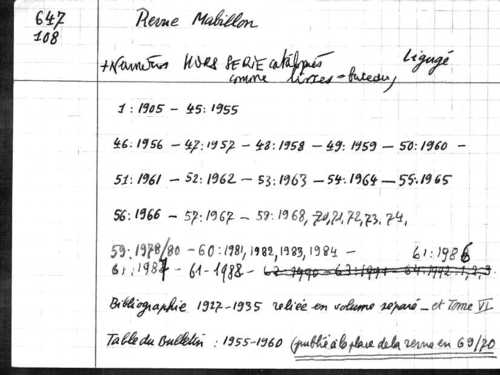 647
108
Revue Mabillon
Ligugé
+ Numéros HORS SERIE catalogués
comme livres = bureau,
1 : 1905 - 45 : 1955
46 : 1956 - 47 : 1957 - 48 : 1958 - 49 : 1959 - 50 : 1960 -
51 : 1961 - 52 : 1962 - 53 : 1963 - 54 : 1964 - 55 : 1965
56 : 1966 - 57 : 1967 - 58 : 1968, 70, 71, 72, 73, 74,
59 : 1978/80 - 60 : 1981, 1982, 1983, 1984 - 61 : 1986
61 : 1987 - 61 - 1988 - 62 1990 - 63 : 1991 - 64 : 1992 : 1, 2, 3
Bibliographie 1927-1935 reliée en volume séparé - et Tome VI
Table du Bulletin : 1955-1960 (publié à la place de la revue en 69/70